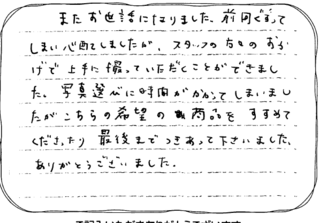 またお世話になりました。前回ぐずって
しまい心配しましたが、スタッフの方々のおか
げで上手に撮っていただくことができまし
た。写真選びに時間がかかってしまいまし
たがこちらの希望の商品をすすめて
くださったり最後までつきあって下さいました。
ありがとうございました。